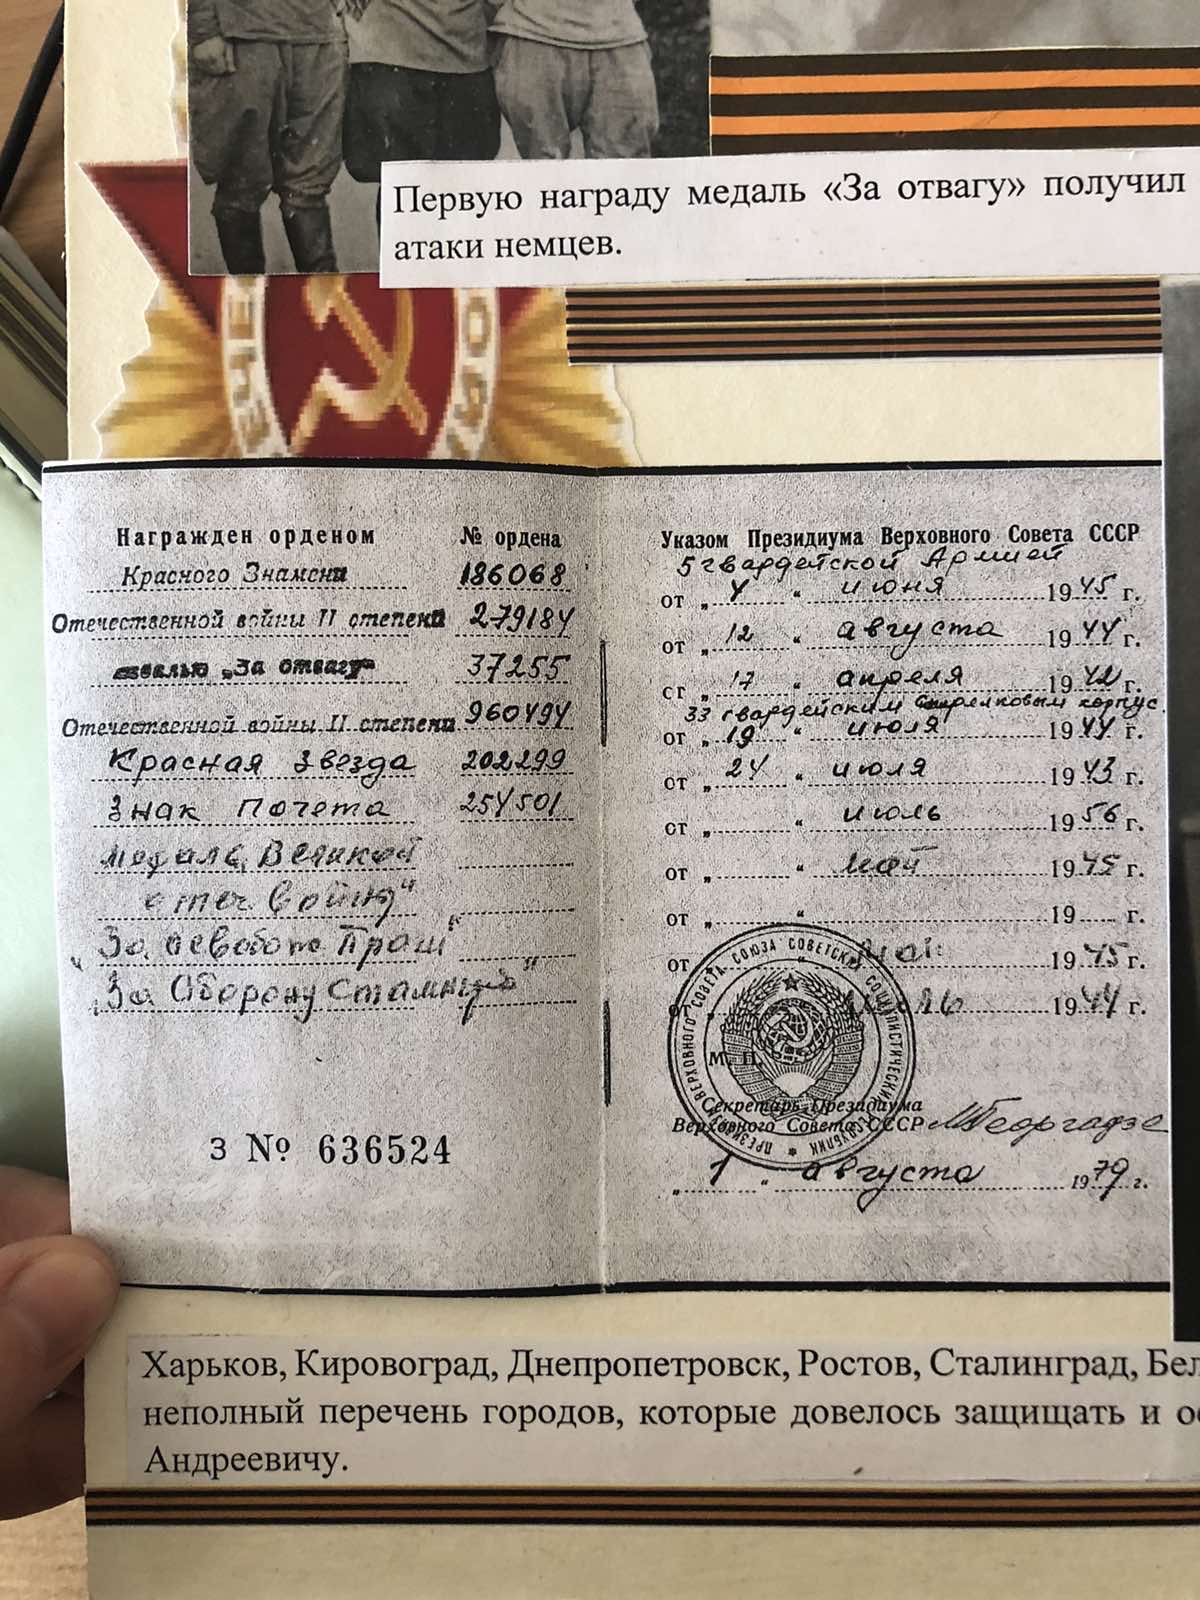 Первую награду медаль «За отвагу» получил
атаки немцев.
Награжден орденом № ордена
Красного Знамени 186068
Отечественной войны II степени 279184
„За отвагу" 37255
Отечественной войны II степени 960494
Красная Звезда 202299
Знак Почета 254501
медаль, Великой
отеч. войну"
„За освобож Праги"
„За Оборону
З № 636524
Указом Президиума Верховного Совета СССР
5 гвардейской Армией
от „ 4 " июня 1945 г.
от „ 12 " августа 1944 г.
от „ 17 " апреля 1942 г.
33 гвардейским Стрелковым корпус.
от „ 19 " июля 1944 г.
от „ 24 " июля 1943 г.
от „ " июль 1956 г.
от „ " май 1975 г.
от „ " 19 г.
от „ " май 1945 г.
от 1944 г.
М. П.
Секретарь Президиума
Верховного Совета СССР МГеоргадзе
„ 1 " августа 1979 г.
Харьков, Кировоград, Днепропетровск, Ростов, Сталинград, Бел
неполный перечень городов, которые довелось защищать и ос
Андреевичу.